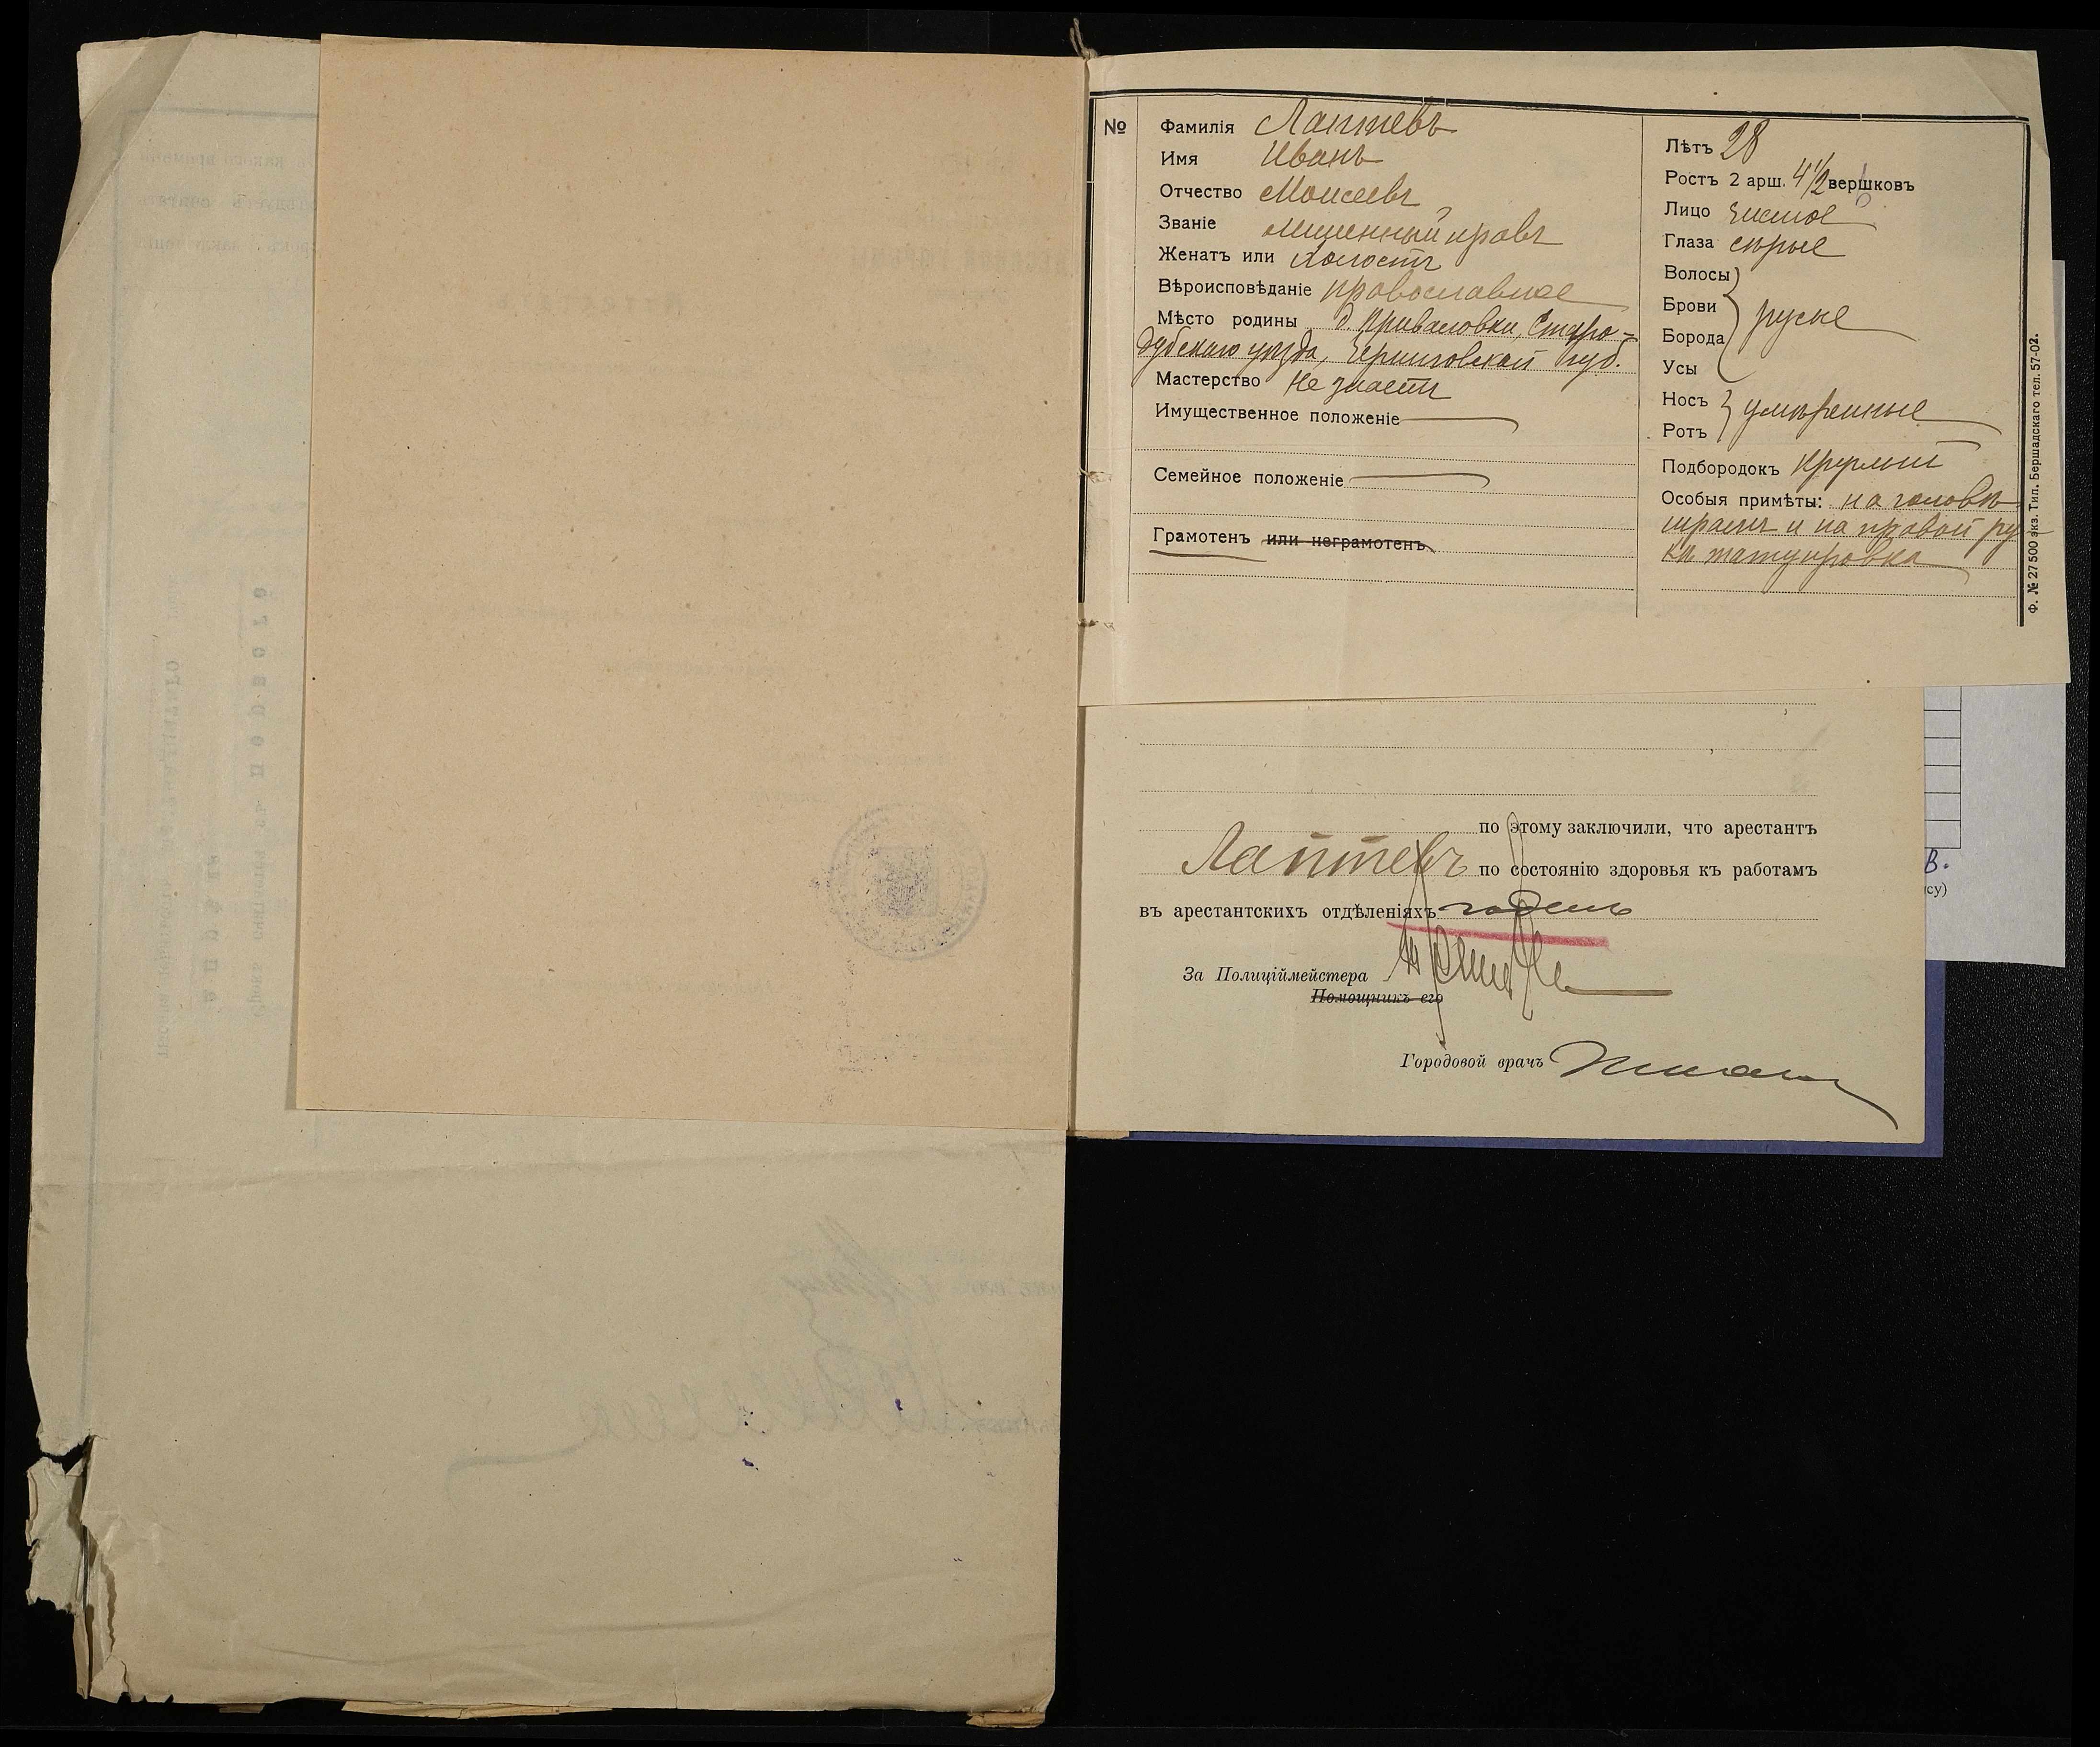 №
Фамилія Лаптевъ
Имя Иванъ
Отчество Моисеевъ
Званіе лишенный правъ
Женатъ или холостъ
Вѣроисповѣданіе православное
Мѣсто родины д. Приваловки, Старо-
дубскаго уѣзда, Черниговской губ.
Мастерство не знаетъ
Имущественное положеніе
Семейное положеніе
Грамотенъ или неграмотенъ
Лѣтъ 28
Ростъ 2 арш. 4 1/2 вершковъ
Лицо чистое
Глаза сѣрые
Волосы
Брови
Борода
Усы
русые
Носъ
Ротъ
умѣренные
Подбородокъ круглый
Особыя примѣты: на головѣ
шрамъ и на правой ру-
кѣ татуировка
Ф. № 27 500 экз. Тип. Бершадскаго тел. 57-02.
по этому заключили, что арестантъ
Лаптевъ по состоянію здоровья къ работамъ
въ арестантскихъ отдѣленіяхъ годенъ
За Полиціймейстера
Помощникъ его
Городовой врачъ
в.
су)